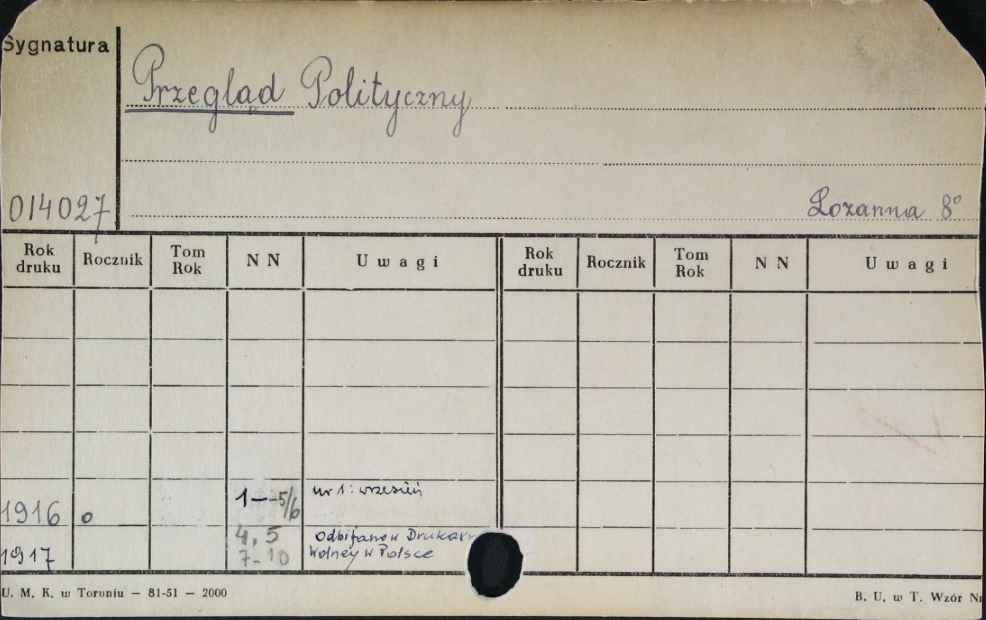 Sygnatura
Przegląd Polityczny
014027
Lozanna 8°
Rok druku Rocznik Tom Rok N N Uwagi Rok druku Rocznik Tom Rok N N Uwagi
1916 0 1-5/6 nr 1: wrzesień
1917 4, 5 Odbijano w Drukarn
7-10 Wolnej w Polsce
U. M. K. w Toruniu — 81-51 — 2000
B. U. w T. Wzór Nr